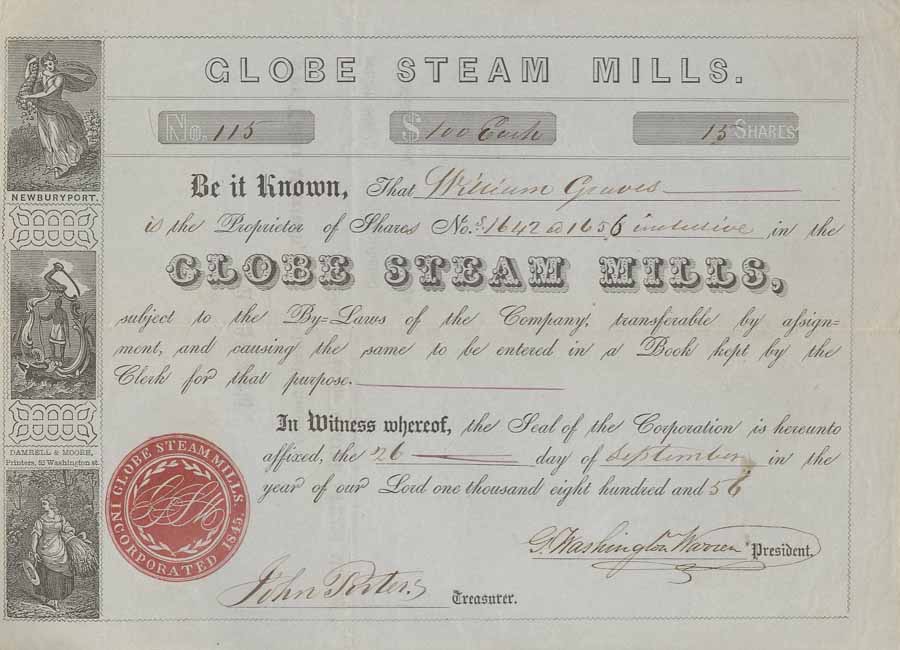 GLOBE STEAM MILLS.
No. 115
$ 100 Each
15 SHARES
Be it Known, That William Graves
is the Proprietor of Shares No.s 1642 to 1656 inclusive in the
GLOBE STEAM MILLS,
subject to the By-Laws of the Company, transferable by assign-
ment, and causing the same to be entered in a Book kept by the
Clerk for that purpose.
In Witness whereof, the Seal of the Corporation is hereunto
affixed, the 26 day of September in the
year of our Lord one thousand eight hundred and 56
G. Washington Warren President.
John Porter Treasurer.
NEWBURYPORT.
DAMRELL & MOORE,
Printers, 52 Washington st.
GLOBE STEAM MILLS. INCORPORATED 1845.
GSM